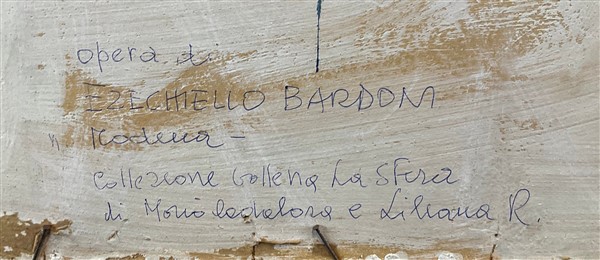 opera di
EZECHIELLO BARDONI
n. Modena -
Collezione Galleria La Sfera
di Mario e Liliana R.